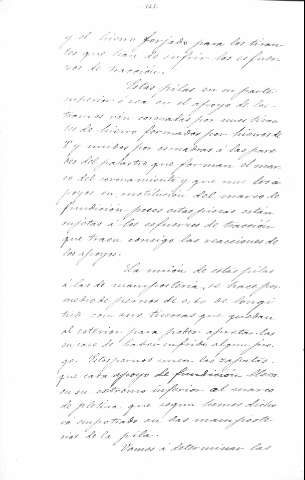 y el hierro forjado para los tiran-
tes que han de sufrir los esfuer-
zos de tracción.
Estas pilas en su parte
superior ó sea en el apoyo de los
tramos van coronadas por unos tiran-
tes de hierro formados por hierros de
T y unidos por escuadras á las pare-
des del palastro que forman el mar-
co del coronamiento y que nos
en sustitución del marco de
fundición pues estas piezas están
sujetas á los esfuerzos de tracción
que traen consigo las reacciones de
los apoyos.
La unión de estas pilas
á las de mampostería, se hace por
medio de pernos de de longi-
tud con sus tuercas que quedan
al exterior para poder apretar las
en caso de haber sufrido algun jue-
go. pernos unen las zapatas
que cada apoyo de fundición lleva
en su extremo inferior al marco
de pletina que segun hemos dicho
vá empotrado en las mamposte-
rias de la pila.
Vamos á determinar las